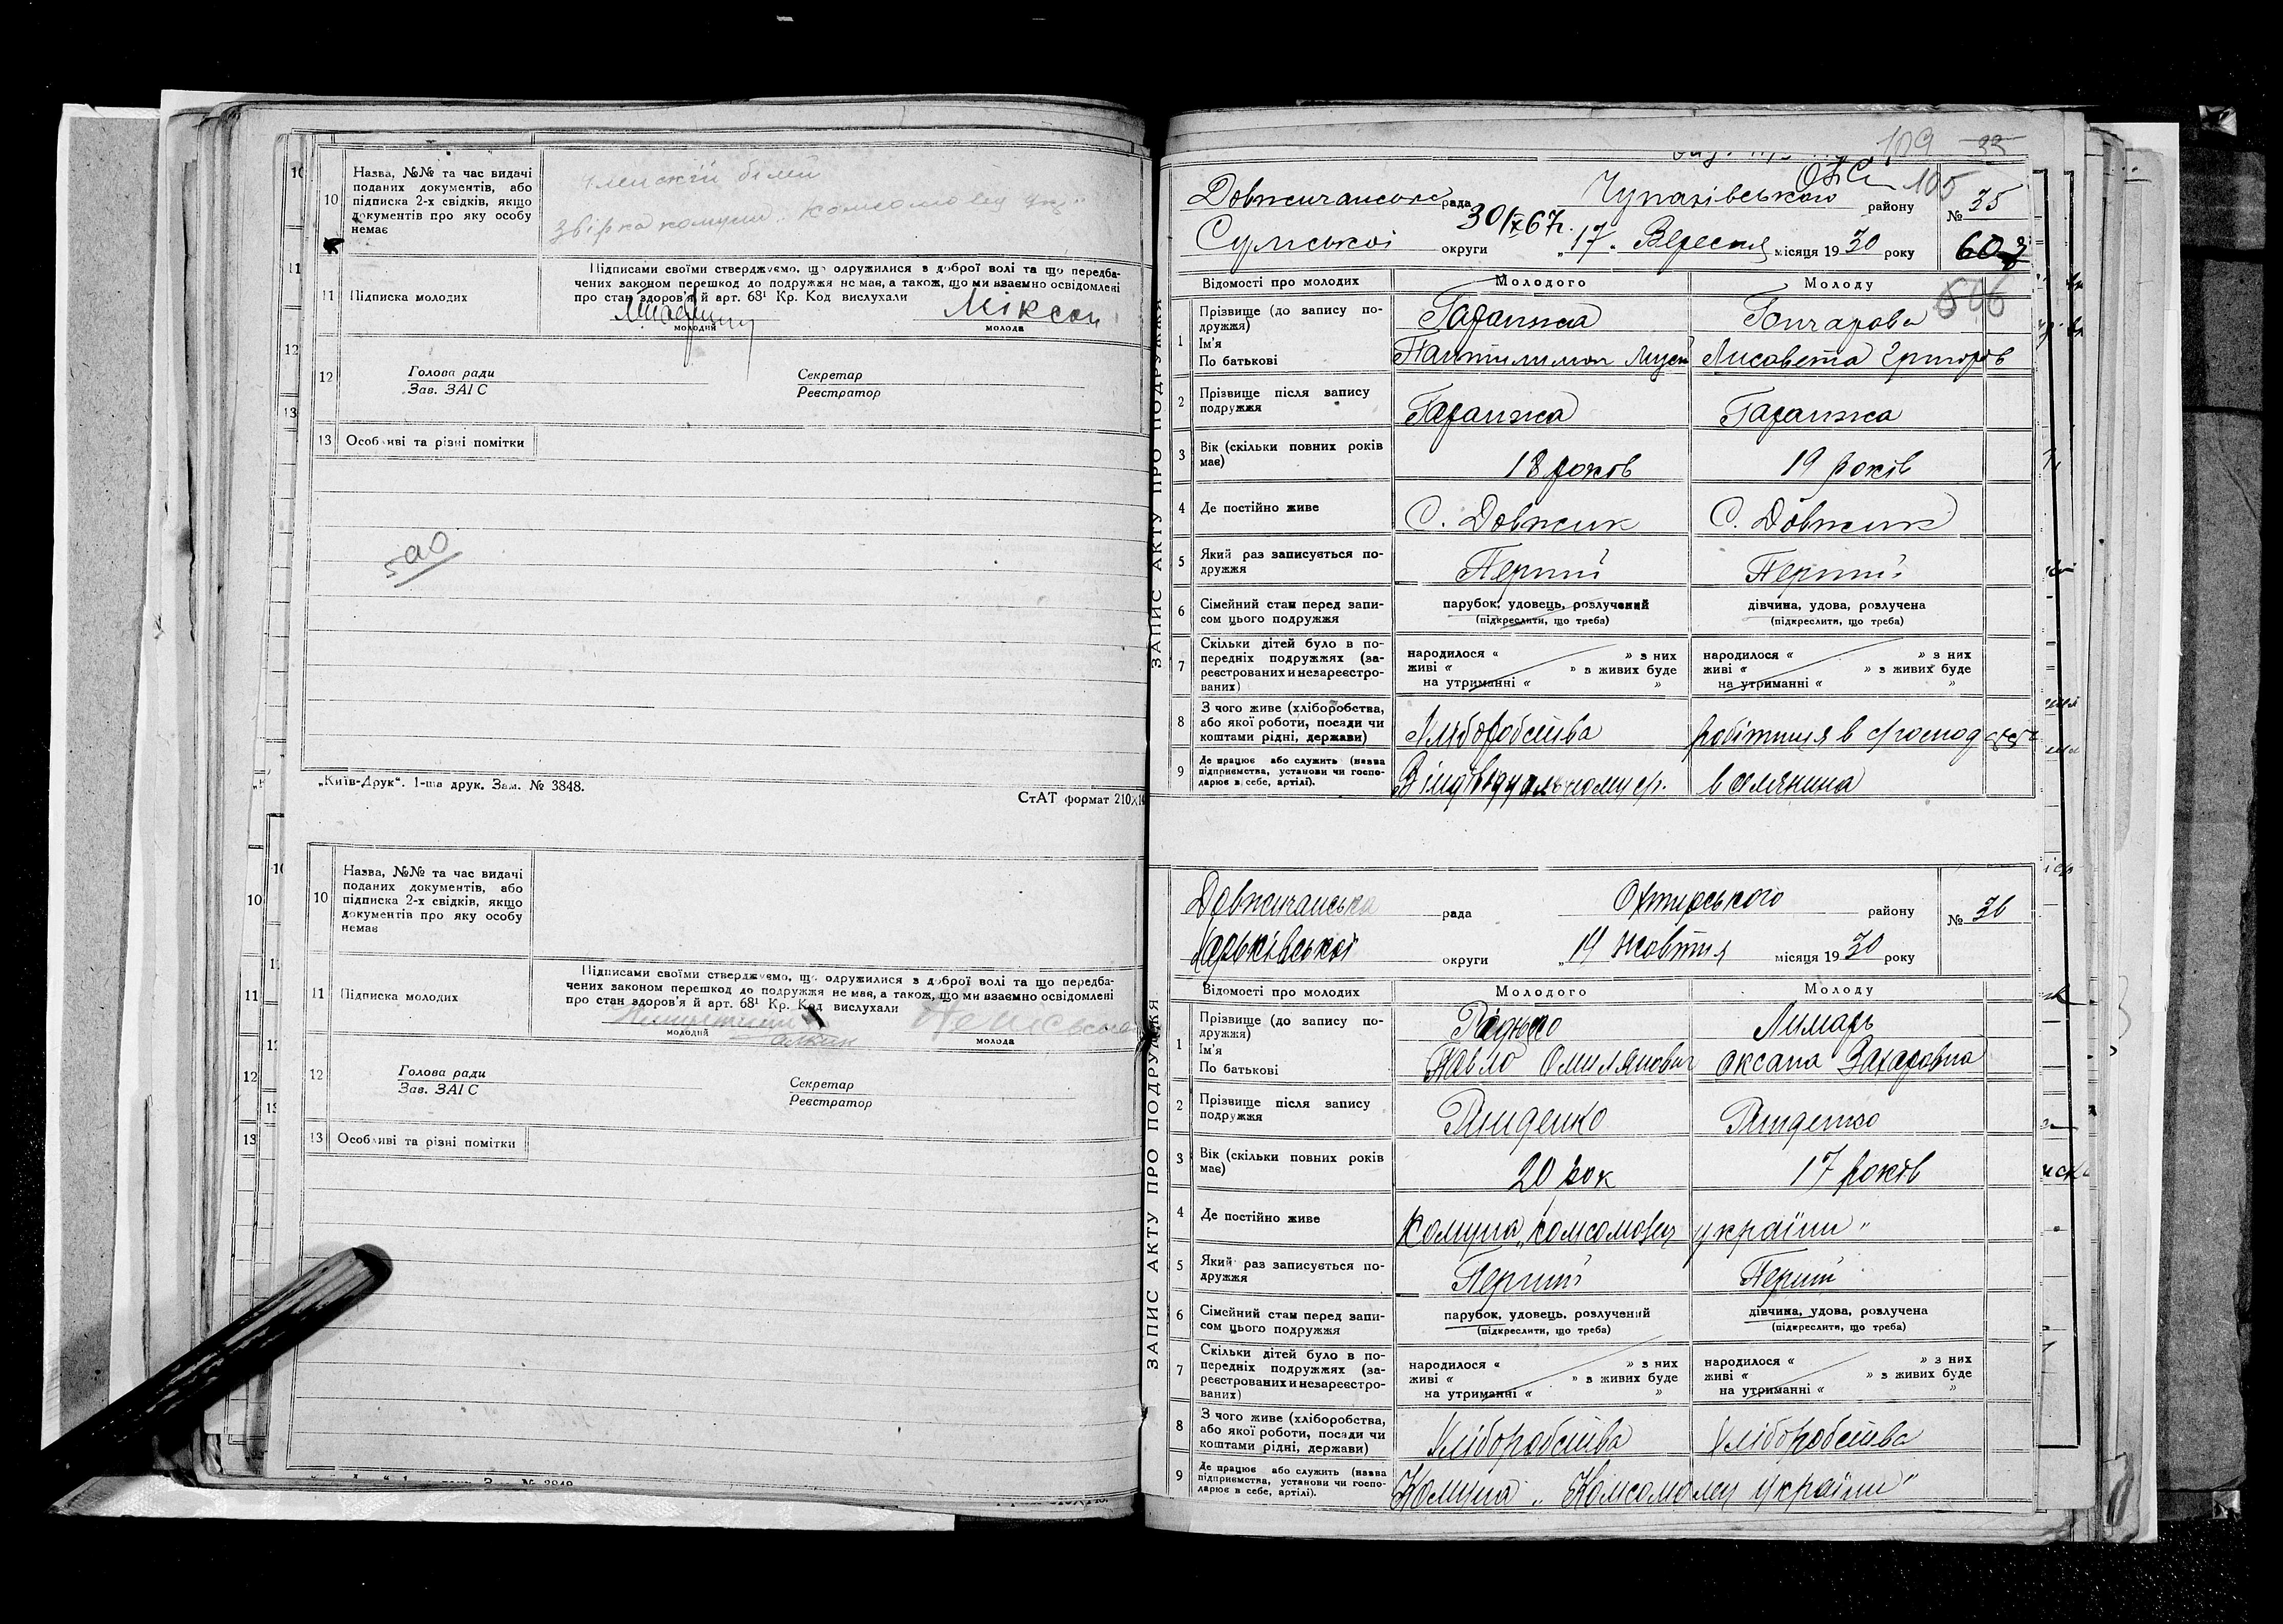 10
Назва, №№ та час видачі
поданих документів, або
підписка 2-х свідків, якщо
документів про яку особу
немає
11
Підписка молодих
Підписами своїми стверджуємо, що одружилися з доброї волі та що передба-
чених законом перешкод до подружжя не має, а також, що ми взаємно освідомлені
про стан здоров'я й арт. 68¹ Кр. Код вислухали
молодий
молода
12
Голова ради
Зав. ЗАГС
Секретар
Реєстратор
13
Особливі та різні помітки
500
„Київ-Друк“. 1-ша друк. Зам. № 3848.
СтАТ формат 210×
10
Назва, №№ та час видачі
поданих документів, або
підписка 2-х свідків, якщо
документів про яку особу
немає
11
Підписка молодих
Підписами своїми стверджуємо, що одружилися з доброї волі та що передба-
чених законом перешкод до подружжя не має, а також, що ми взаємно освідомлені
про стан здоров'я й арт. 68¹ Кр. Код вислухали
молодий
молода
12
Голова ради
Зав. ЗАГС
Секретар
Реєстратор
13
Особливі та різні помітки
109 33
105
ЗАПИС АКТУ ПРО ПОДРУЖЖЯ
Довжичанська рада Чупахівського району № 35
30/IX 67р.
Сумської округи „17. Вересня місяця 1930 року
603
Відомості про молодих Молодого Молоду
546
1 Прізвище (до запису по-
дружжя) Гаранжа Гончарова
Ім'я
По батькові Пантилимон Мусій Лисавета Григоров
2 Прізвище після запису
подружжя Гаранжа Гаранжа
3 Вік (скільки повних років
має) 18 років 19 років
4 Де постійно живе С. Довжик С. Довжик
5 Який раз записується по-
дружжя Перший Перший
6 Сімейний стан перед запи-
сом цього подружжя парубок, удовець, розлучений дівчина, удова, розлучена
(підкреслити, що треба) (підкреслити, що треба)
7 Скільки дітей було в по-
передніх подружжях (за-
реєстрованих и незареєстро-
ваних)
народилося « » з них народилося « » з них
живі « » з живих буде живі « » з живих буде
на утриманні « » на утриманні « »
8 З чого живе (хліборобства,
або якої роботи, посади чи
коштами рідні, держави) Хліборобства робітниця в господ
9 Де працює або служить (назва
підприємства, установи чи госпо-
дарює в себе, артілі). В індівідуальному в селянина
ЗАПИС АКТУ ПРО ПОДРУЖЖЯ
Довжичанська рада Охтирського району № 36
Харьківської округи „19 жовтня місяця 1930 року
Відомості про молодих Молодого Молоду
1 Прізвище (до запису по-
дружжя) Лимарь
Ім'я
По батькові Павло Омилянович Оксана Захаровна
2 Прізвище після запису
подружжя
3 Вік (скільки повних років
має) 20 рок 17 років
4 Де постійно живе Комуна „комсомолец україни“
5 Який раз записується по-
дружжя Перший Перший
6 Сімейний стан перед запи-
сом цього подружжя парубок, удовець, розлучений дівчина, удова, розлучена
(підкреслити, що треба) (підкреслити, що треба)
7 Скільки дітей було в по-
передніх подружжях (за-
реєстрованих и незареєстро-
ваних)
народилося « » з них народилося « » з них
живі « » з живих буде живі « » з живих буде
на утриманні « » на утриманні « »
8 З чого живе (хліборобства,
або якої роботи, посади чи
коштами рідні, держави) Хліборобства Хліборобства
9 Де працює або служить (назва
підприємства, установи чи госпо-
дарює в себе, артілі). Комуна „Комсомолец україни“